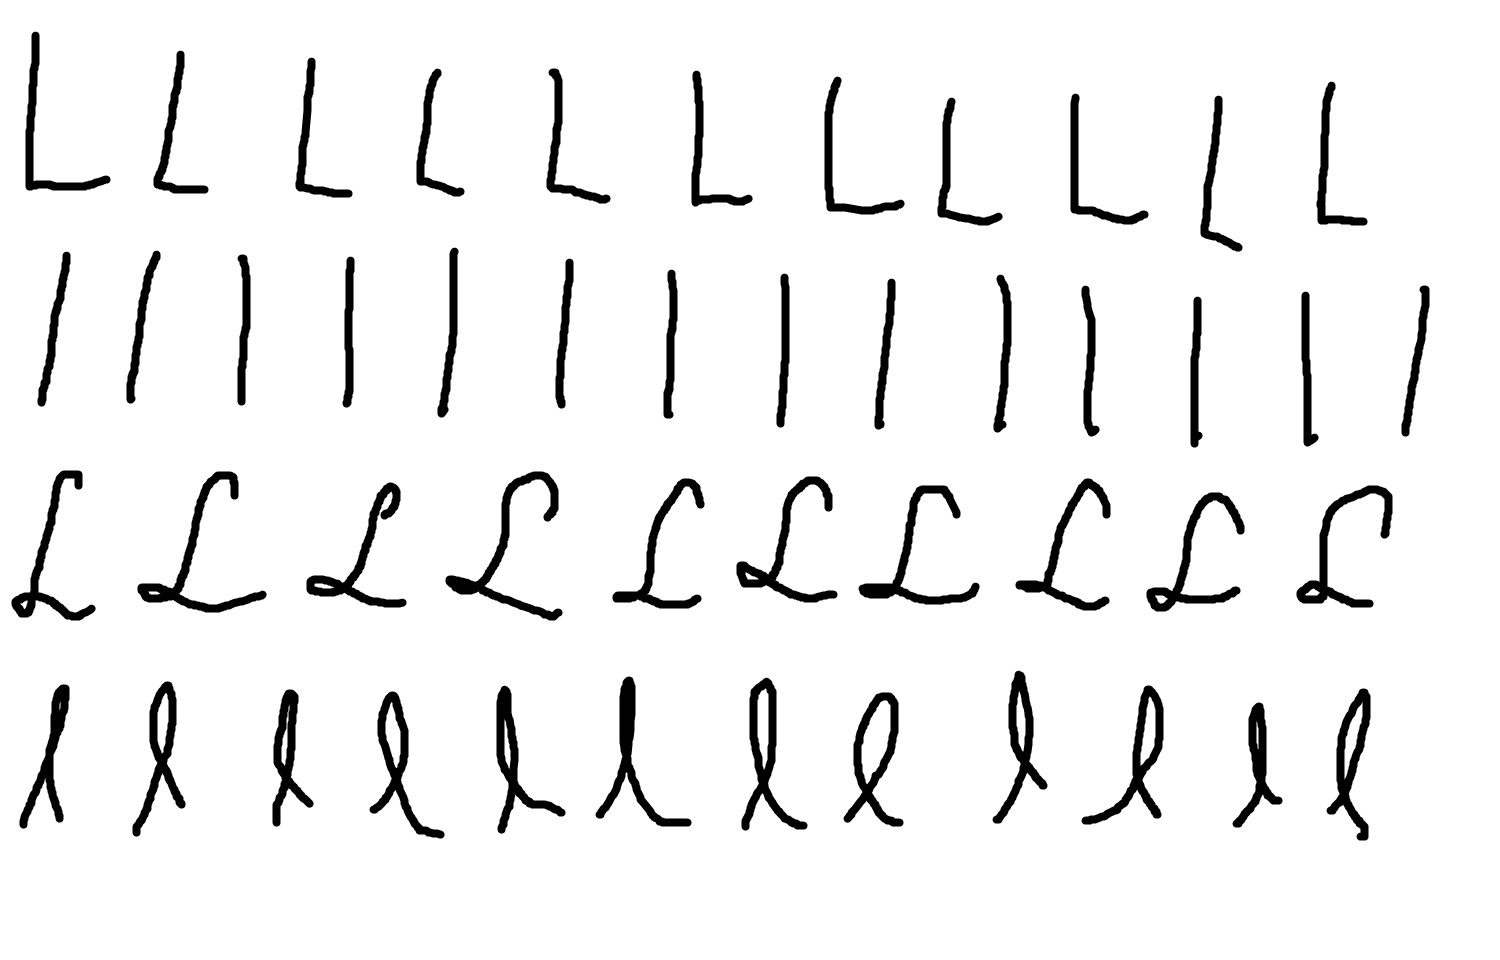 L L L L L L L L L L L
l l l l l l l l l l l l l l
L L L L L L L L L L
l l l l l l l l l l l l